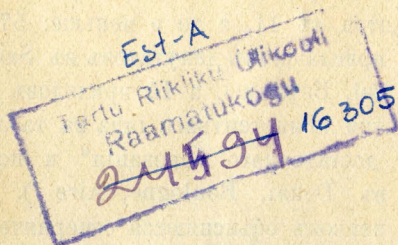 Est-A
Tartu Riikliku Ülikooli
Raamatukogu
24594 16305